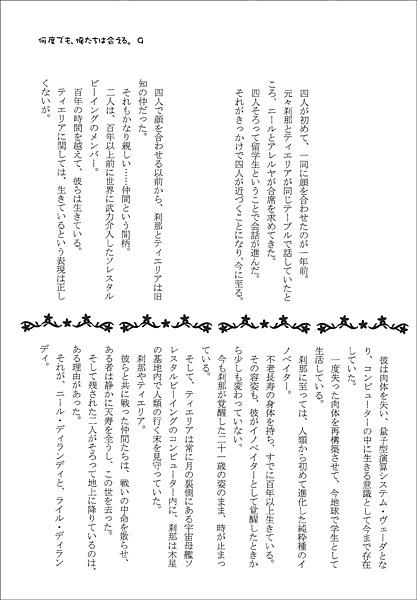 何度でも、俺たちは会える。 9
四人が初めて、一同に顔を合わせたのが一年前。
元々刹那とティエリアが同じテーブルで話していたと
ころ、ニールとアレルヤが合席を求めてきた。
四人そろって留学生ということで会話が進んだ。
それがきっかけで四人が近づくことになり、今に至る。
四人で顔を合わせる以前から、刹那とティエリアは旧
知の仲だった。
それもかなり親しい……仲間という間柄。
二人は、百年以上前に世界に武力介入したソレスタル
ビーイングのメンバー。
百年の時間を越えて、彼らは生きている。
ティエリアに関しては、生きているという表現は正し
くないが。
彼は肉体を失い、量子型演算システム・ヴェーダとな
り、コンピューターの中に生きる意識として今まで存在
していた。
一度失った肉体を再構築させて、今地球で学生として
生活している。
刹那に至っては、人類から初めて進化した純粋種のイ
ノベイター。
不老長寿の身体を持ち、すでに百年以上生きている。
その容姿も、彼がイノベイターとして覚醒したときか
ら少しも変わっていない。
今も刹那が覚醒した二十一歳の姿のまま、時が止まっ
ている。
そして、ティエリアは常に月の裏側にある宇宙母艦ソ
レスタルビーイングのコンピューター内に、刹那は木星
の基地内で人類の行く末を見守っていた。
刹那やティエリア。
彼らと共に戦った仲間たちは、戦いの中命を散らせ、
ある者は静かに天寿を全うし、この世を去った。
そして残された二人がそろって地上に降りているのは、
ある理由があった。
それが、ニール・ディランディと、ライル・ディラン
ディ。